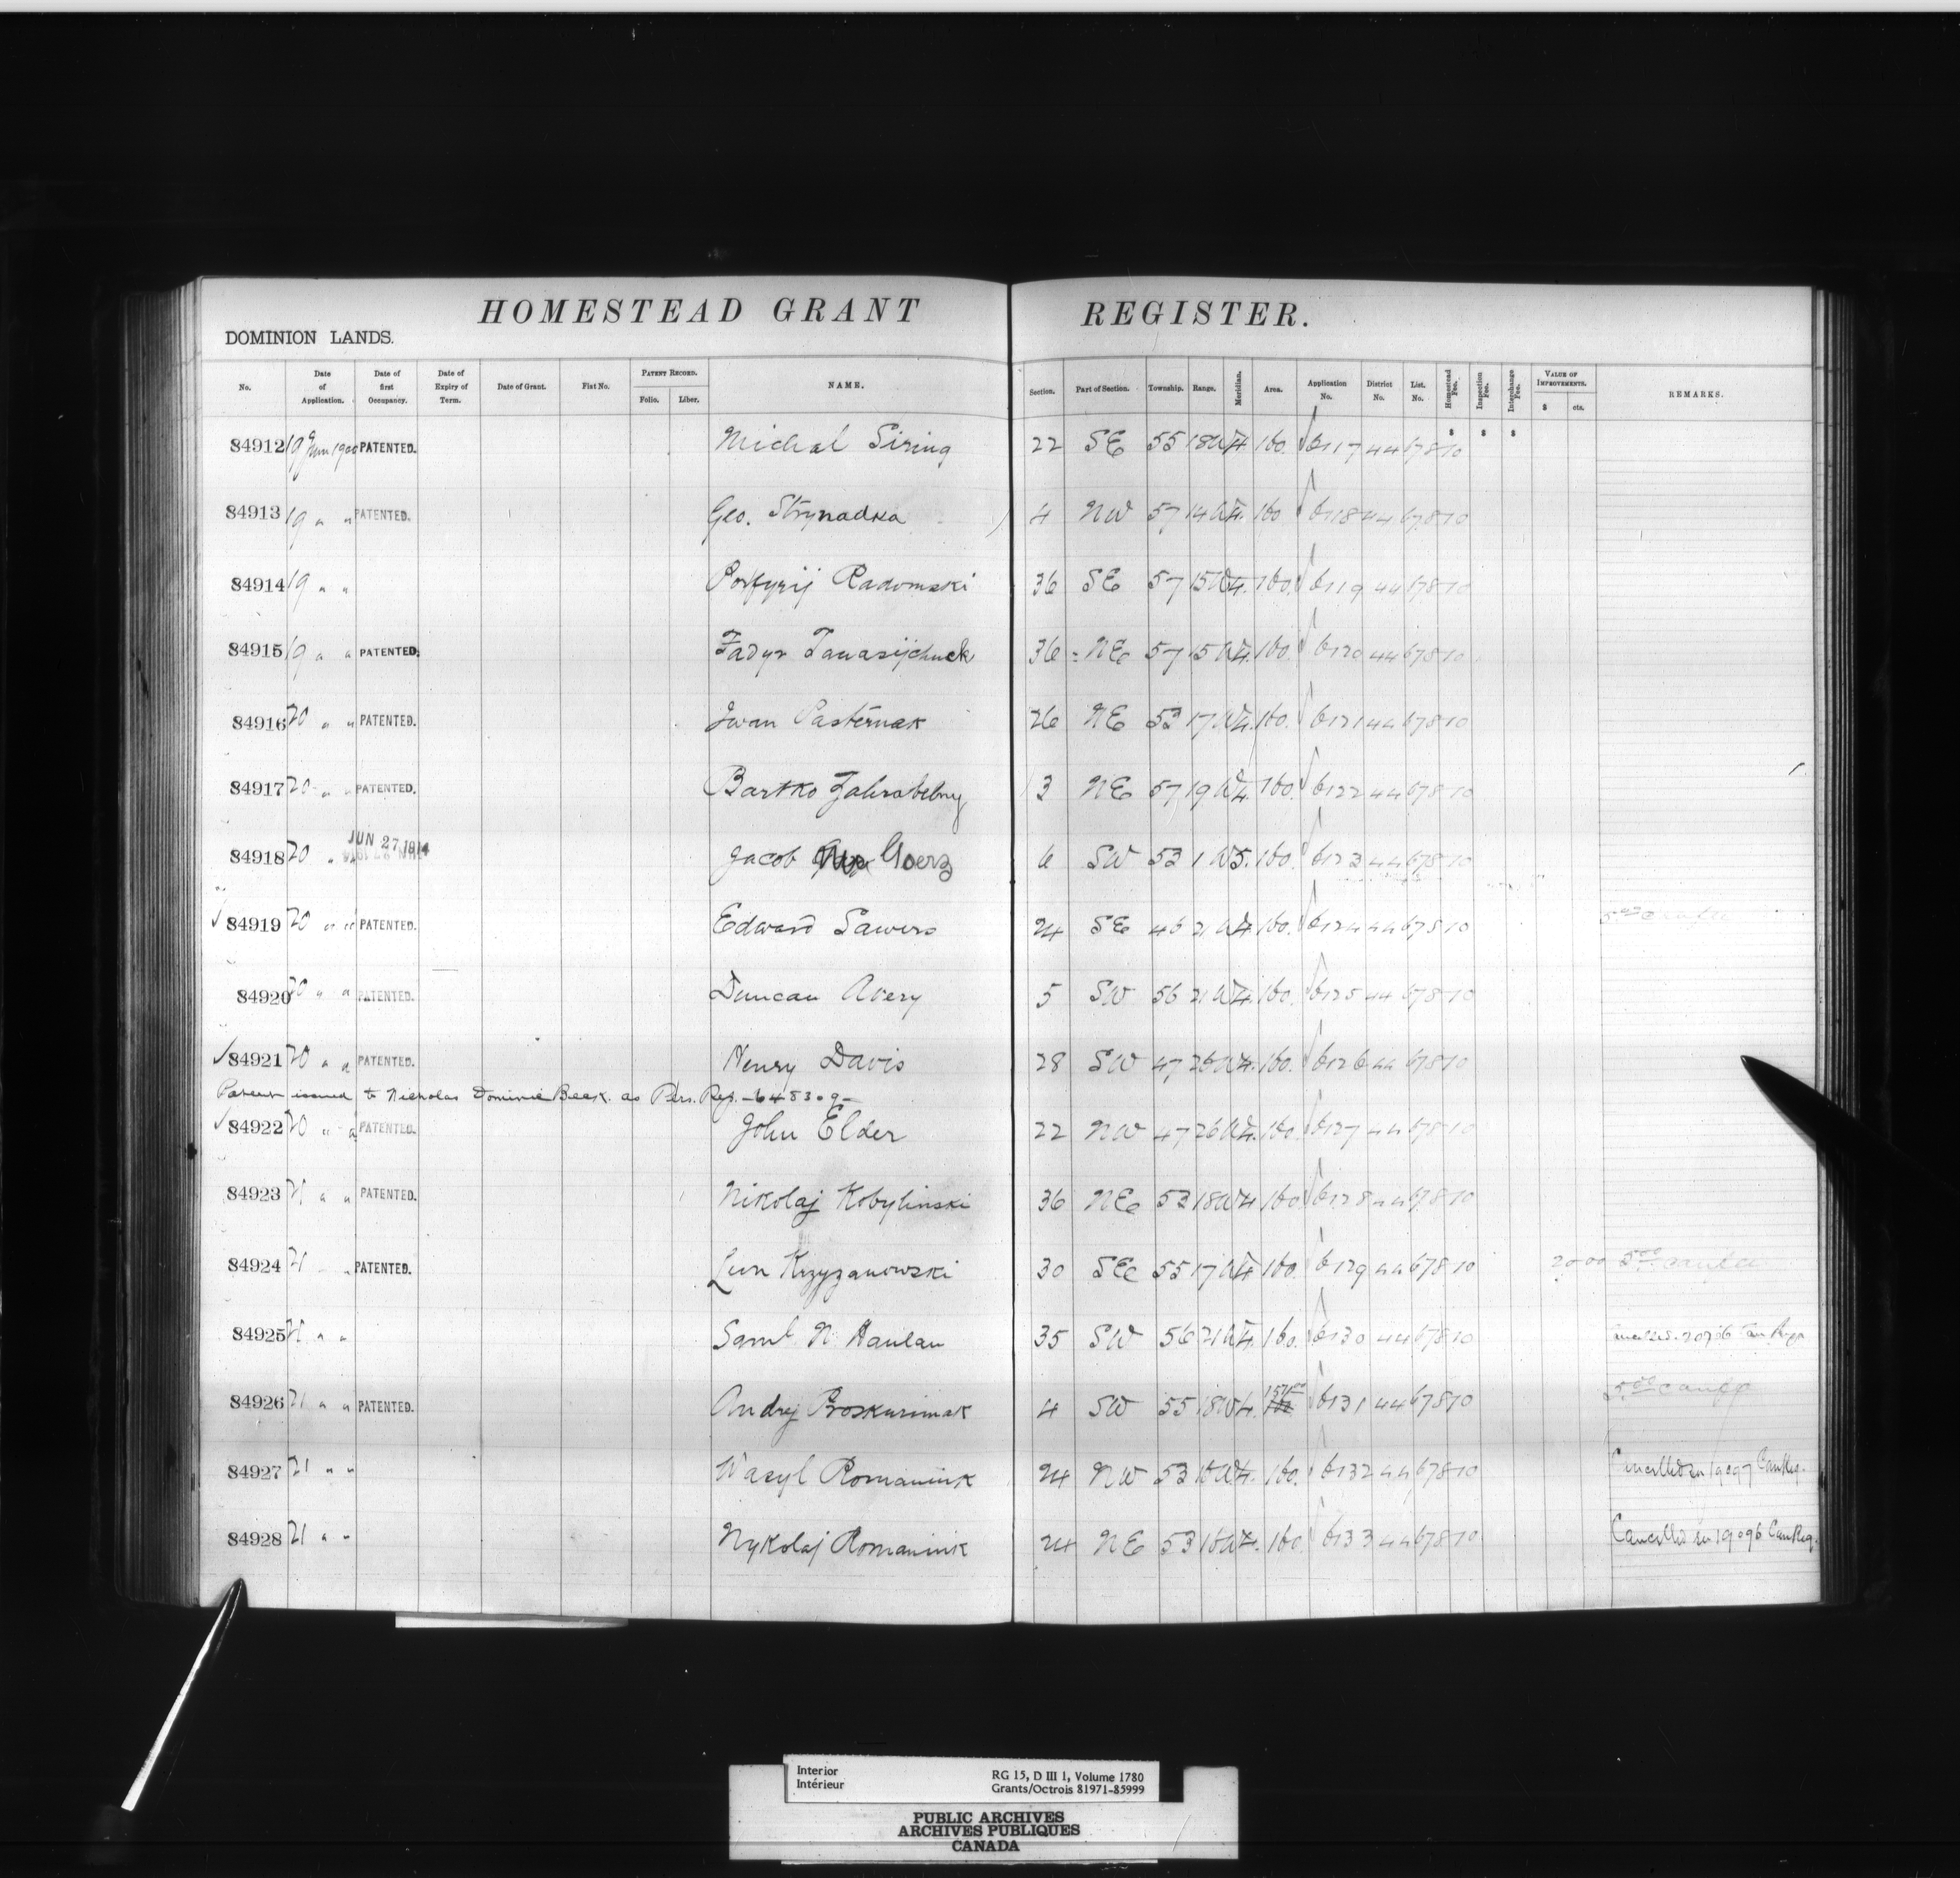 HOMESTEAD GRANT REGISTER.
DOMINION LANDS.
No. Date of Application. Date of first Occupancy. Date of Expiry of Term. Date of Grant. Fiat No. PATENT RECORD. Folio. Liber. NAME. Section. Part of Section. Township. Range. Meridian. Area. Application No. District No. List. No. Homestead Fee. Inspection Fee. Interchange Fee. VALUE OF IMPROVEMENTS. $ cts. REMARKS.
84912 19 June 1900 PATENTED. Michal Siring 22 SE 55 18 W4 160. 6117 44 67810 $ $ $
84913 19 " " PATENTED. Geo. Strynadka 4 NW 57 14 W4. 160 6118 44 67810
84914 19 " " Porfyrij Radomski 36 SE 57 15 W4. 160. 6119 44 67810
84915 19 " " PATENTED. Fadyr Tanasijchuck 36 NE 57 15 W4. 160. 6120 44 67810
84916 20 " " PATENTED. Iwan Pasternak 26 NE 53 17 W4. 160. 6121 44 67810
84917 20 " " PATENTED. Bartko Zahrabelny 3 NE 57 19 W4. 160. 6122 44 67810
84918 20 " " JUN 27 1914 Jacob Goerz 6 SW 53 1 W5. 160. 6123 44 67810
84919 20 " " PATENTED. Edward Sawers 24 SE 46 21 W4. 160. 6124 44 67810
84920 20 " " PATENTED. Duncan Avery 5 SW 56 21 W4. 160. 6125 44 67810
84921 20 " " PATENTED. Henry Davis 28 SW 47 26 W4. 160. 6126 44 67810
Patent issued to Nicholas Dominic Beck as Pers. Rep. - 648309 -
84922 20 " " PATENTED. John Elder 22 NW 47 26 W4. 160. 6127 44 67810
84923 21 " " PATENTED. Nikolaj Kobylinski 36 NE 53 18 W4 160 6128 44 67810
84924 21 " PATENTED. Leon Krzyzanowski 30 SE 55 17 W4 160. 6129 44 67810 2000 5.00
84925 21 " " Saml N. Hanlan 35 SW 56 21 W4. 160. 6130 44 67810 Cancelled. 20706 Can Reg
84926 21 " " PATENTED. Andrej Proskurniak 4 SW 55 18 W4. 6131 44 67810 5.00
84927 21 " " Wasyl Romaniuk 24 NW 53 16 W4. 160. 6132 44 67810 Cancelled in 19097 Can Reg.
84928 21 " " Nykolaj Romaniuk 24 NE 53 16 W4. 160. 6133 44 67810 Cancelled in 19096 Can Reg.
Interior
Intérieur
RG 15, D III 1, Volume 1780
Grants/Octrois 81971-85999
PUBLIC ARCHIVES
ARCHIVES PUBLIQUES
CANADA